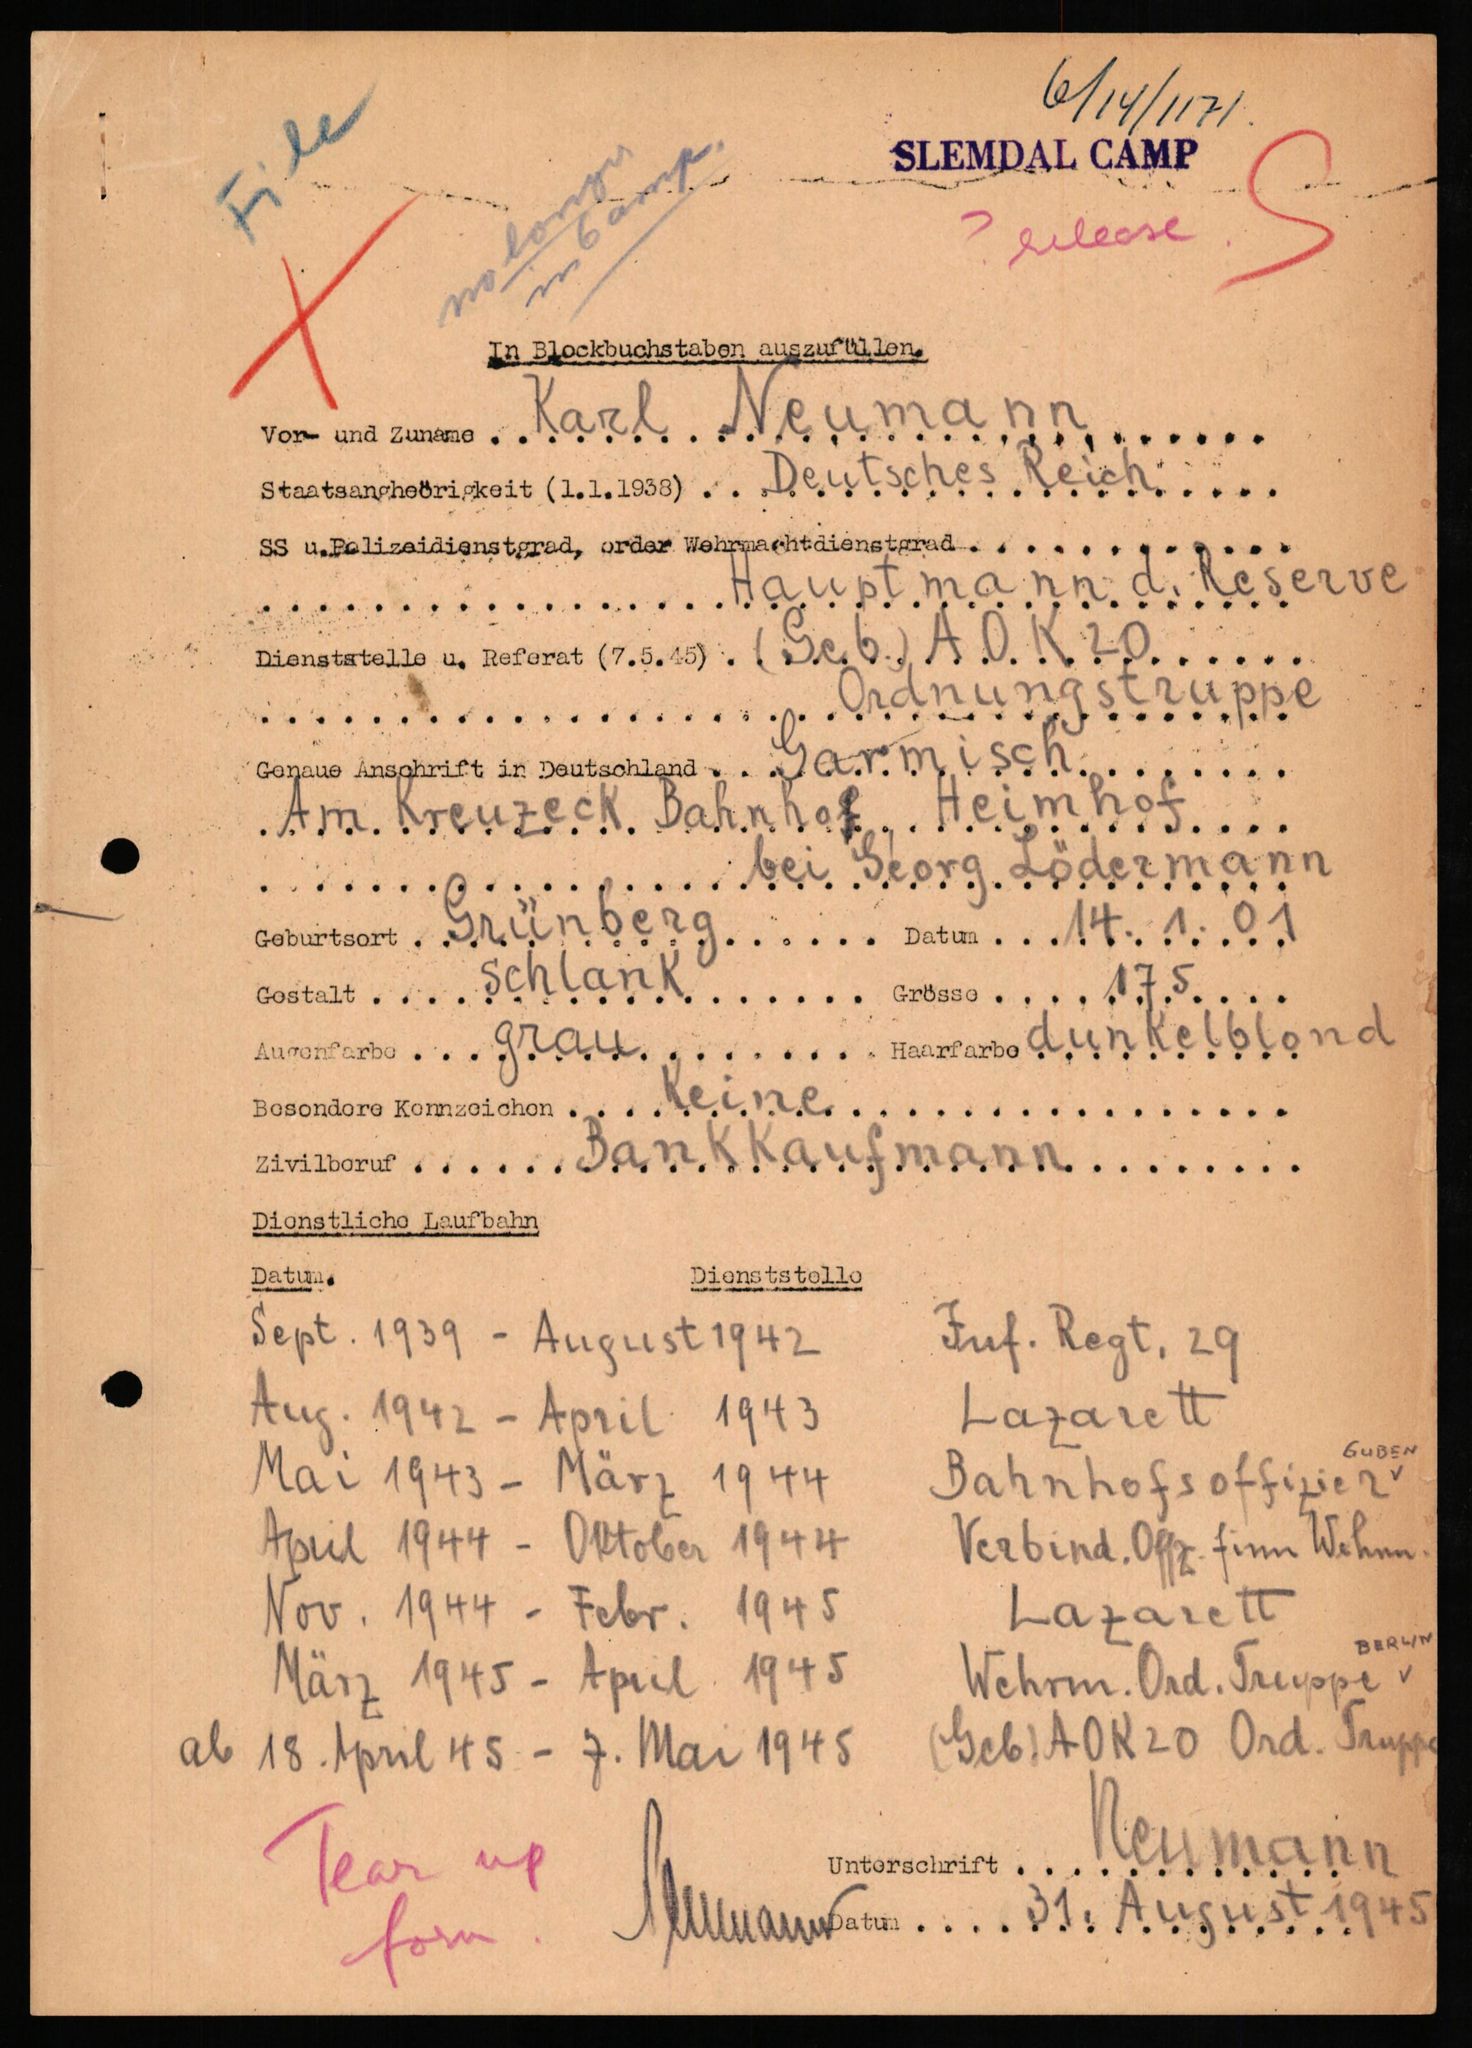 6/14/1171.
SLEMDAL CAMP
File
no longer
in Camp.
? release. S
X
In Blockbuchstaben auszufüllen.
Vor- und Zuname . . Karl Neumann
Staatsangheörigkeit (1.1.1938) . . Deutsches Reich
SS u.Polizeidienstgrad, order Wehrmachtdienstgrad . . .
Hauptmann d. Reserve
Dienststelle u. Referat (7.5.45) . (Geb.) A O K 20
Ordnungstruppe
Genaue Anschrift in Deutschland . . Garmisch
Am Kreuzeck Bahnhof, Heimhof
bei Georg Lödermann
Geburtsort . . Grünberg Datum . . 14. 1. 01
Gestalt . . . schlank Grösse . . . 175
Augenfarbe . . . grau Haarfarbe dunkelblond
Besondere Kennzeichen . . . Keine
Zivilberuf . . . Bankkaufmann
Dienstliche Laufbahn
Datum. Dienststelle
Sept. 1939 - August 1942 Inf. Regt. 29
Aug. 1942 - April 1943 Lazarett
Mai 1943 - März 1944 Bahnhofsoffizier GUBEN
April 1944 - Oktober 1944 Verbind. Offz. finn Wehrm.
Nov. 1944 - Febr. 1945 Lazarett
März 1945 - April 1945 Wehrm. Ord. Truppe BERLIN
ab 18. April 45 - 7. Mai 1945 (Geb.) AOK 20 Ord. Truppe
Tear up
form.
Unterschrift . . . Neumann
Neumann
Datum . . . 31. August 1945